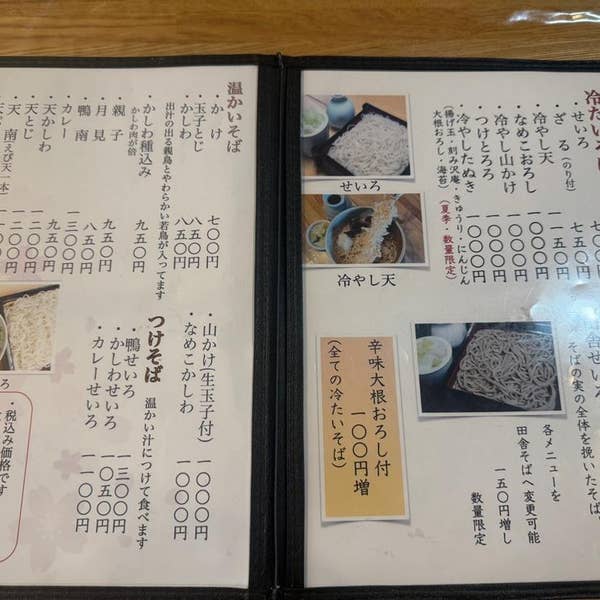 冷たいそば
・せいろ
・ざる(のり付) 七五〇円
冷やし天 一一五〇円
・なめこおろし 一〇〇〇円
・冷やし山かけ 一〇〇〇円
・つけとろろ 一〇〇〇円
・冷やしたぬき 一〇〇〇円
(揚げ玉・刻み沢庵・きゅうり・にんじん
大根おろし・海苔)(夏季・数量限定)
せいろ
冷やし天
そばの実の全体を挽いたそば
各メニューを
田舎そばへ変更可能
一五〇円増し
数量限定
辛味大根おろし付
一〇〇円増
(全ての冷たいそば)
温かいそば
・かけ 七〇〇円
・玉子とじ 八五〇円
・かしわ 八五〇円
出汁の出る親鳥とやわらかい若鳥が入ってます
・かしわ種込み 九五〇円
かしわ肉が倍
・親子 九五〇円
・月見 八五〇円
・鴨南 一三〇〇円
・カレー
・天かしわ
・天とじ
・天南(えび天一本)
・山かけ(生玉子付) 一〇〇〇円
・なめこかしわ 一〇〇〇円
つけそば 温かい汁につけて食べます
・鴨せいろ 一三〇〇円
・かしわせいろ 一〇五〇円
・カレーせいろ 一一〇〇円
・税込み価格です